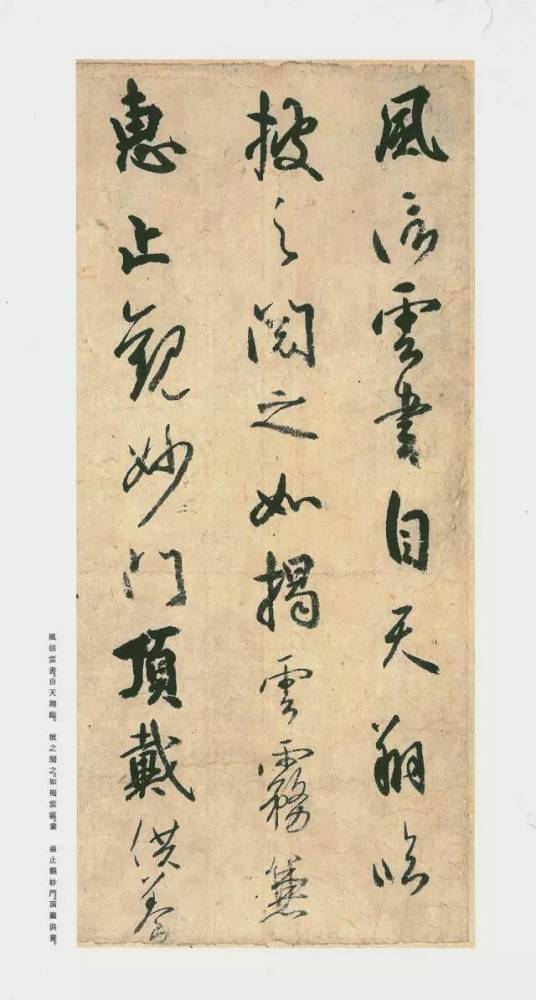 風信雲書自天翔臨
披之閱之如揭雲霧兼
惠止觀妙門頂戴供養
風信雲書。自天翔臨。披之閱之。如揭雲霧。兼惠止觀妙門。頂戴供養。